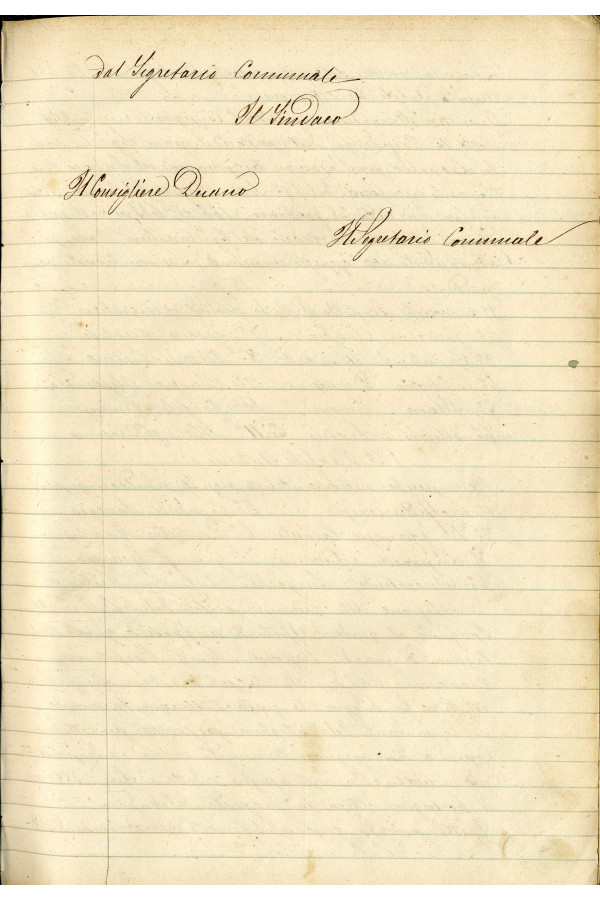 dal Segretario Comunale
Il Sindaco
Il Consigliere
Il Segretario Comunale